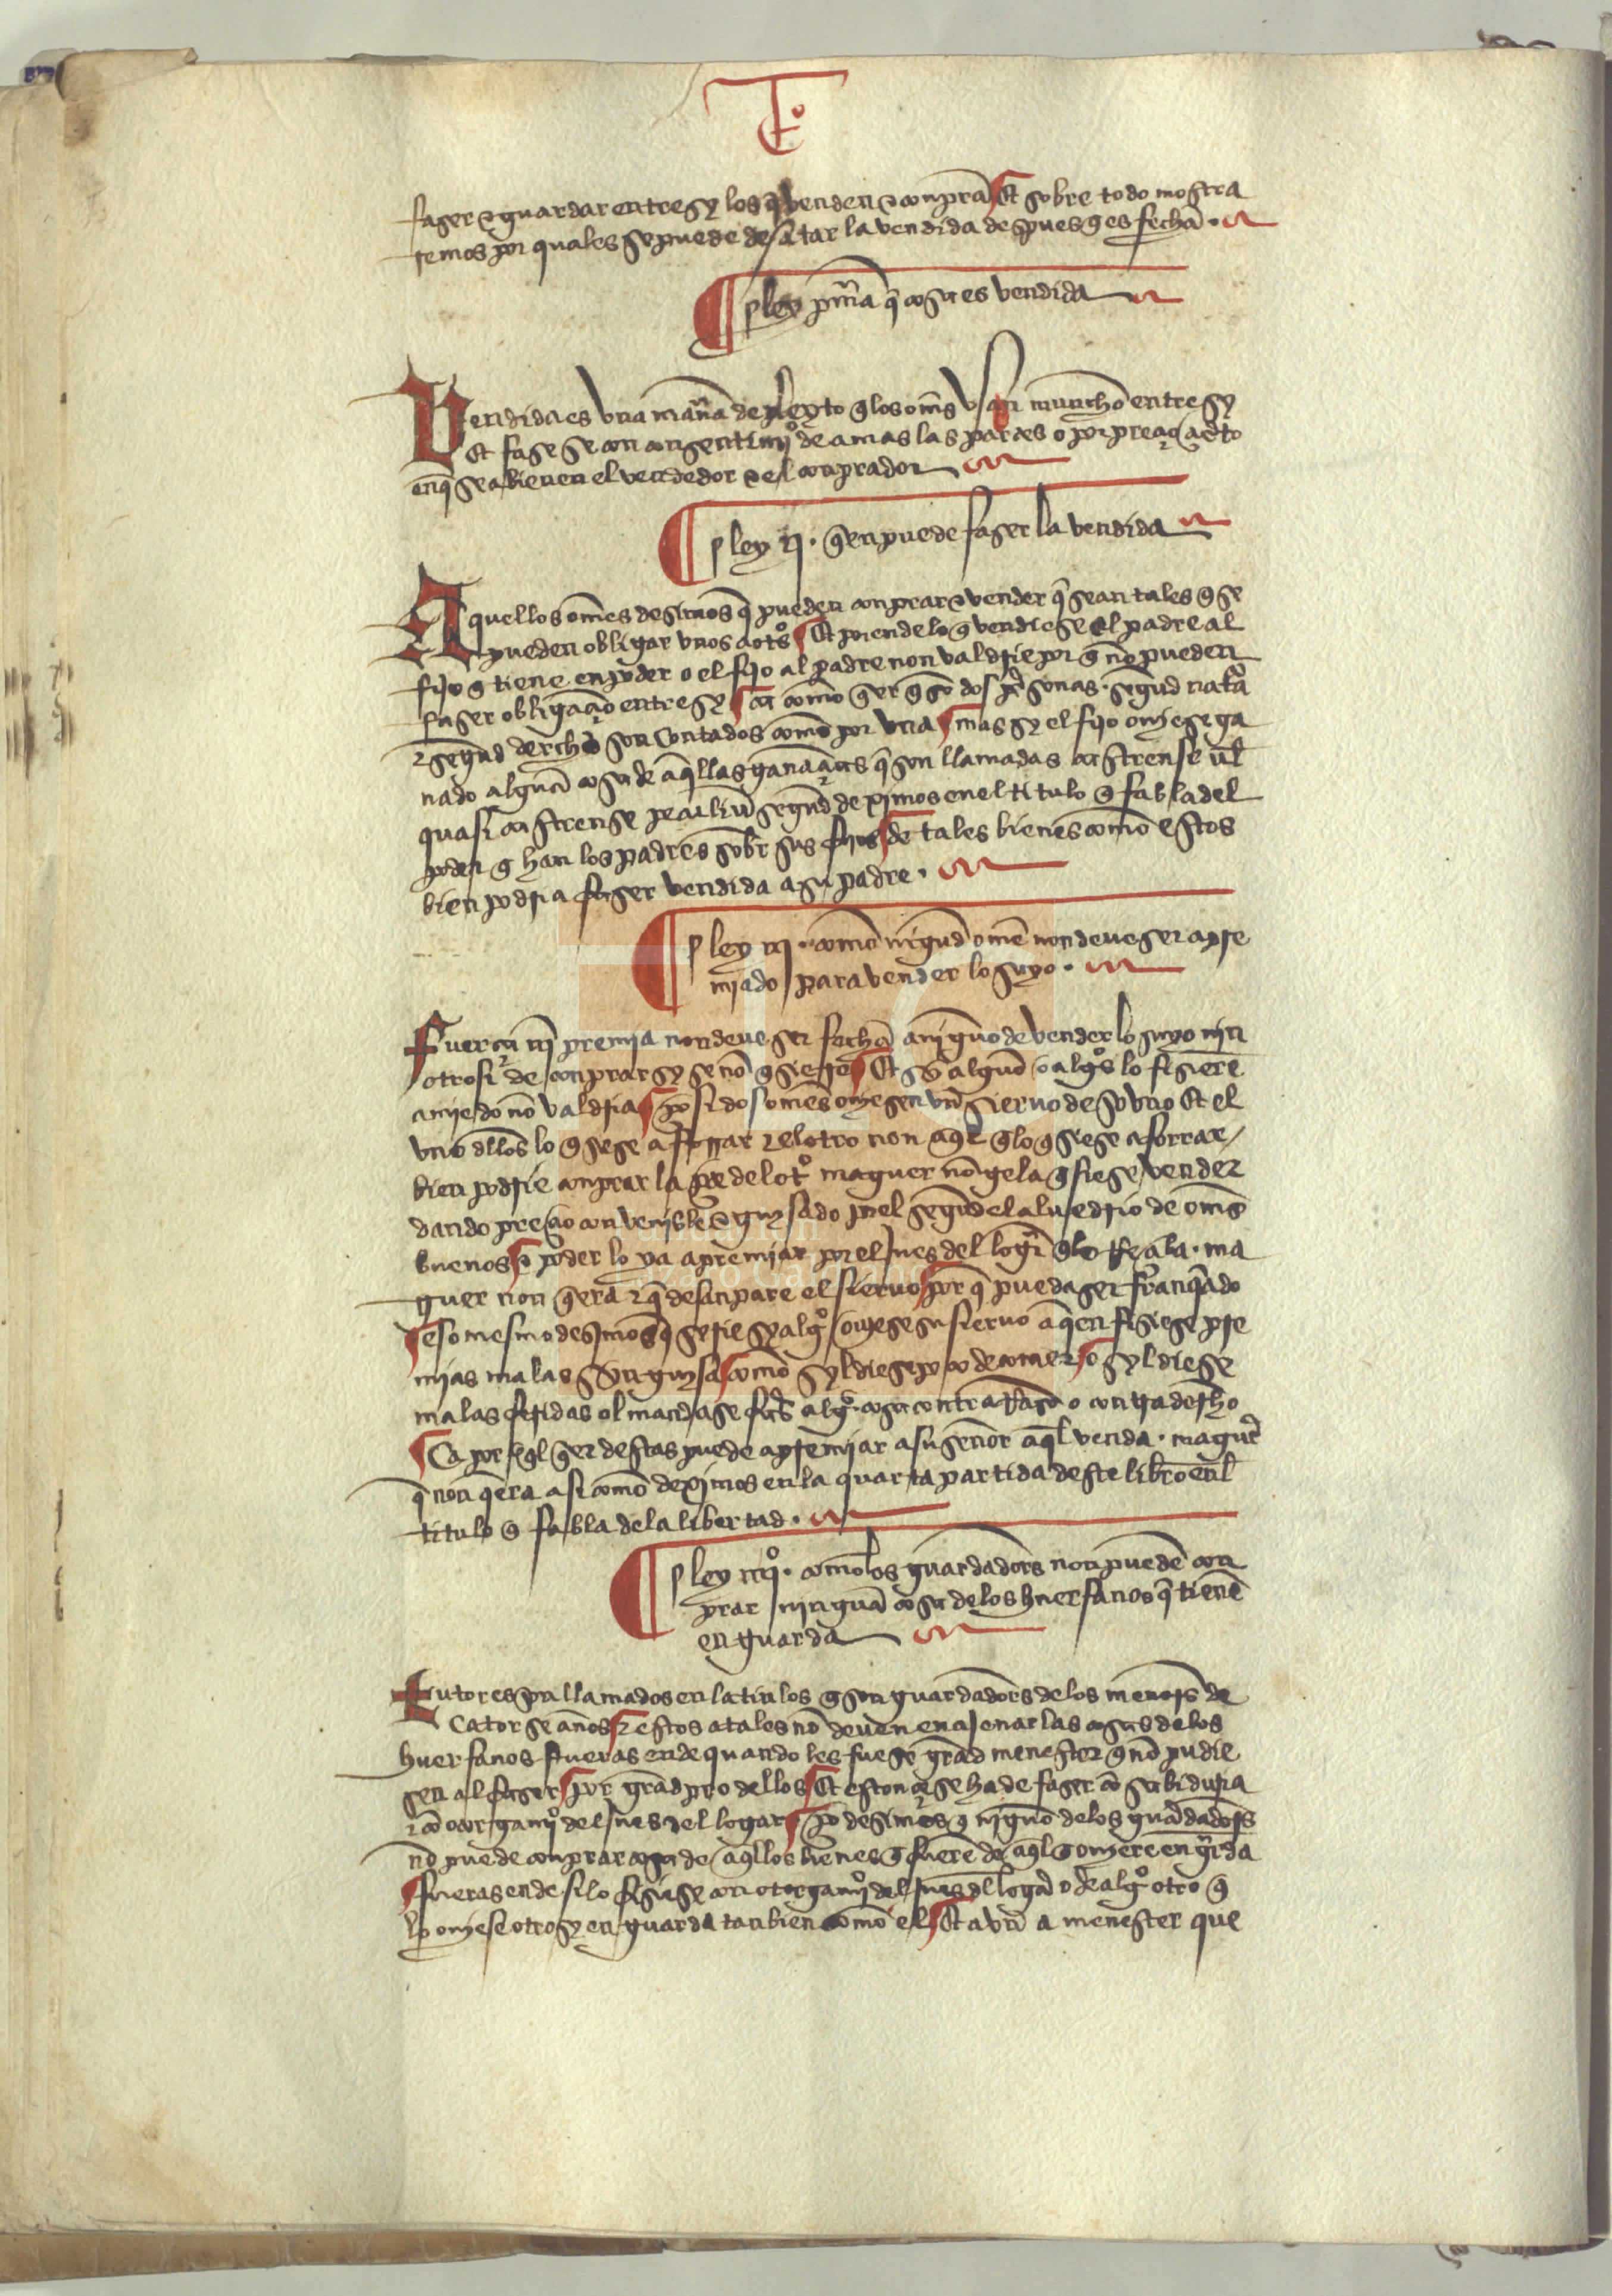 Tº
faser & guardar entre sy los q̃ venden & conprã Et sobre todo mostra
remos por quales se puede desatar la vendida despues q̃ es fecha.
ley pmȓa q̃ cosa es vendida
Vendida es vna mañra de pleyto q̃ los oms̃ vsan muncho entre sy
Et fase se con consentimjº de amas las partes o por preçio çierto
en q̃ se abienen el vendedor & el conprador
ley ij. q̃en puede faser la vendida
Aquellos omẽs desimos q̃ pueden conprar & vender q̃ sean tales q̃ se
pueden obligar vnos a otºs Et por ende lo q̃ vendiese el padre al
fijo q̃ tiene en poder o el fijo al padre non valdrie por q̃ nõ pueden
faser obligaçiõ entre sy ca como q̃er q̃ sõ dos ꝑsonas. segund natȓa
& segund derecho son contados como por vna mas sy el fijo oujese ga
nado algunã cosa de aq̃llas ganançias q̃ son llamadas castrense vl̃
quasi castrense peculiũ segund deximos en el titulo q̃ fabla del
poder q̃ han los padres sobr̃ sus fijos de tales bienes como estos
bien podria faser vendida a su padre.
ley iij. como njgund omẽ non deue ser apre
mjado para vender lo suyo.
Fuerça nj̃ premja non deue ser fecha a njguno de vender lo suyo njn
otrosi de conprar sy se nõ q̃siere Et sy algund o algºs lo fisiere
a mjedo nõ valdria ꝑo si dos omẽs oujesen vñ sieruo de so vno Et el
vno dellos lo q̃siese aforrar & el otro non aq̃l q̃ lo q̃siese aforrar
bien podrie conprar la ꝑte del otº maguer nõ gela q̃siese vender
dando preçio convenible & guisado por el segund el aluedrio de oms̃
buenos & poder lo ya apremjar por el jues del logȓ q̃ lo reçaba. ma
guer non q̃era & q̃ desanpare el sieruo por q̃ pueda ser franq̃ado
eso mesmo desimos q̃ serie sy algº oujese su sieruo a q̃en fisiese pre
mjas malas syn guysa como syl diese poco de comer o syl diese
malas feridas ol mandase fas̃ algº cosa contra rasõ o contra derecho
Ca por q̃l q̃er destas puede apremjar a su señor a q̃l venda. maguer̃
q̃ non q̃era asi como deximos en la quarta partida deste libro en l̃
titulo q̃ fabla de la libertad.
ley iiijº. como los guardadores non pueden con
prar njngunã cosa de los huerfanos q̃ tienẽ
en guarda
Tutores son llamados en latin los q̃ son guardadores de los menors̃ de
Catorse años & estos atales nõ deuen enajenar las cosas de los
huerfanos fueras ende quando les fuese grãd menester q̃ nõ pudie
sen al faser por grãd pro dellos Et estonçe se ha de faser cõ sabiduria
& cõ otorgamjº del jues del logar ꝑo desimos q̃ njguno de los guardadors̃
nõ puede conprar cosa de aq̃llos bienes q̃ fuere de aq̃l q̃ oujere en grda
fueras ende si lo fisiese con otorgamjº del jues del logar̃ o de algº otro q̃
lo oujese otrosy en guarda tanbien como el Et avñ a menester que